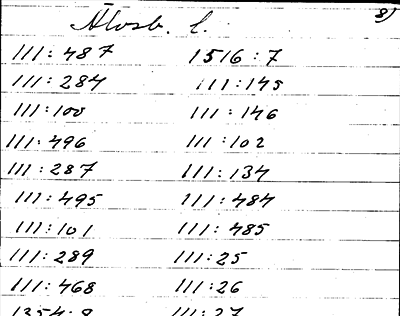 8)
Älvsb. l.
111:487 1516:7
111:284 111:145
111:100 111:146
111:496 111:102
111:287 111:134
111:495 111:484
111:101 111:485
111:289 111:25
111:468 111:26
1354:9 111:27